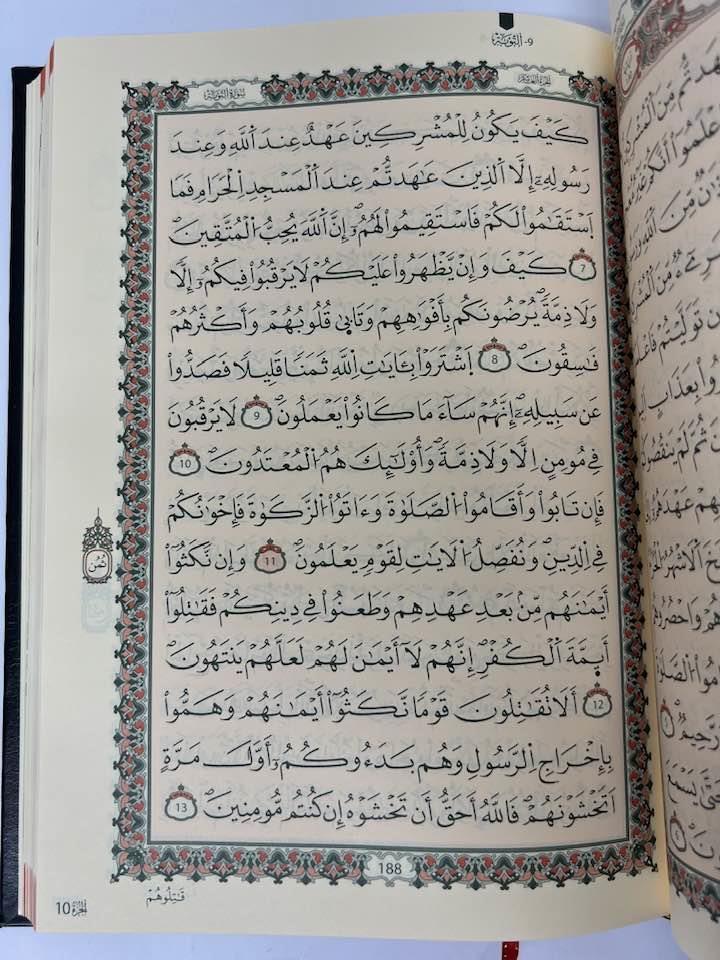 9- التوبة
الجزء العاشر
سورة التوبة
كَيْفَ يَكُونُ لِلْمُشْرِكِينَ عَهْدٌ عِندَ اَللَّهِ وَعِندَ
رَسُولِهِۦٓ إِلَّا اَلذِينَ عَٰهَدتُّمْ عِندَ اَلْمَسْجِدِ اِلْحَرَامِ فَمَا
اَسْتَقَٰمُواْ لَكُمْ فَاسْتَقِيمُواْ لَهُمُۥٓ إِنَّ اَللَّهَ يُحِبُّ اُلْمُتَّقِينَۖ
7 كَيْفَ وَإِنْ يَّظْهَرُواْ عَلَيْكُمْ لَا يَرْقُبُواْ فِيكُمُۥٓ إِلّاٗ
وَلَا ذِمَّةٗۖ يُرْضُونَكُم بِأَفْوَٰهِهِمْ وَتَأْبَىٰ قُلُوبُهُمْ وَأَكْثَرُهُمْ
فَٰسِقُونَۖ 8 اَشْتَرَوْاْ بِـَٔايَٰتِ اِللَّهِ ثَمَناٗ قَلِيلاٗ فَصَدُّواْ
عَن سَبِيلِهِۦٓۖ إِنَّهُمْ سَآءَ مَا كَانُواْ يَعْمَلُونَۖ 9 لَا يَرْقُبُونَ
فِے مُومِنٍ اِلّاٗ وَلَا ذِمَّةٗۖ وَأُوْلَٰٓئِكَ هُمُ اُلْمُعْتَدُونَۖ 10
فَإِن تَابُواْ وَأَقَامُواْ اُلصَّلَوٰةَ وَءَاتَوُاْ اُلزَّكَوٰةَ فَإِخْوَٰنُكُمْ
فِے اِلدِّينِۖ وَنُفَصِّلُ اُلَايَٰتِ لِقَوْمٍ يَعْلَمُونَۖ 11 وَإِن نَّكَثُوٓاْ
أَيْمَٰنَهُم مِّنۢ بَعْدِ عَهْدِهِمْ وَطَعَنُواْ فِے دِينِكُمْ فَقَٰتِلُوٓاْ
أَيِمَّةَ اَلْكُفْرِۖ إِنَّهُمْ لَآ أَيْمَٰنَ لَهُمْ لَعَلَّهُمْ يَنتَهُونَۖ
12 أَلَا تُقَٰتِلُونَ قَوْماٗ نَّكَثُوٓاْ أَيْمَٰنَهُمْ وَهَمُّواْ
بِإِخْرَاجِ اِلرَّسُولِ وَهُم بَدَءُوكُمُۥٓ أَوَّلَ مَرَّةٍ
اَتَخْشَوْنَهُمْۖ فَاللَّهُ أَحَقُّ أَن تَخْشَوْهُ إِن كُنتُم مُّومِنِينَۖ 13
ثمن
188
قَٰتِلُوهُمْ
الجزء 10